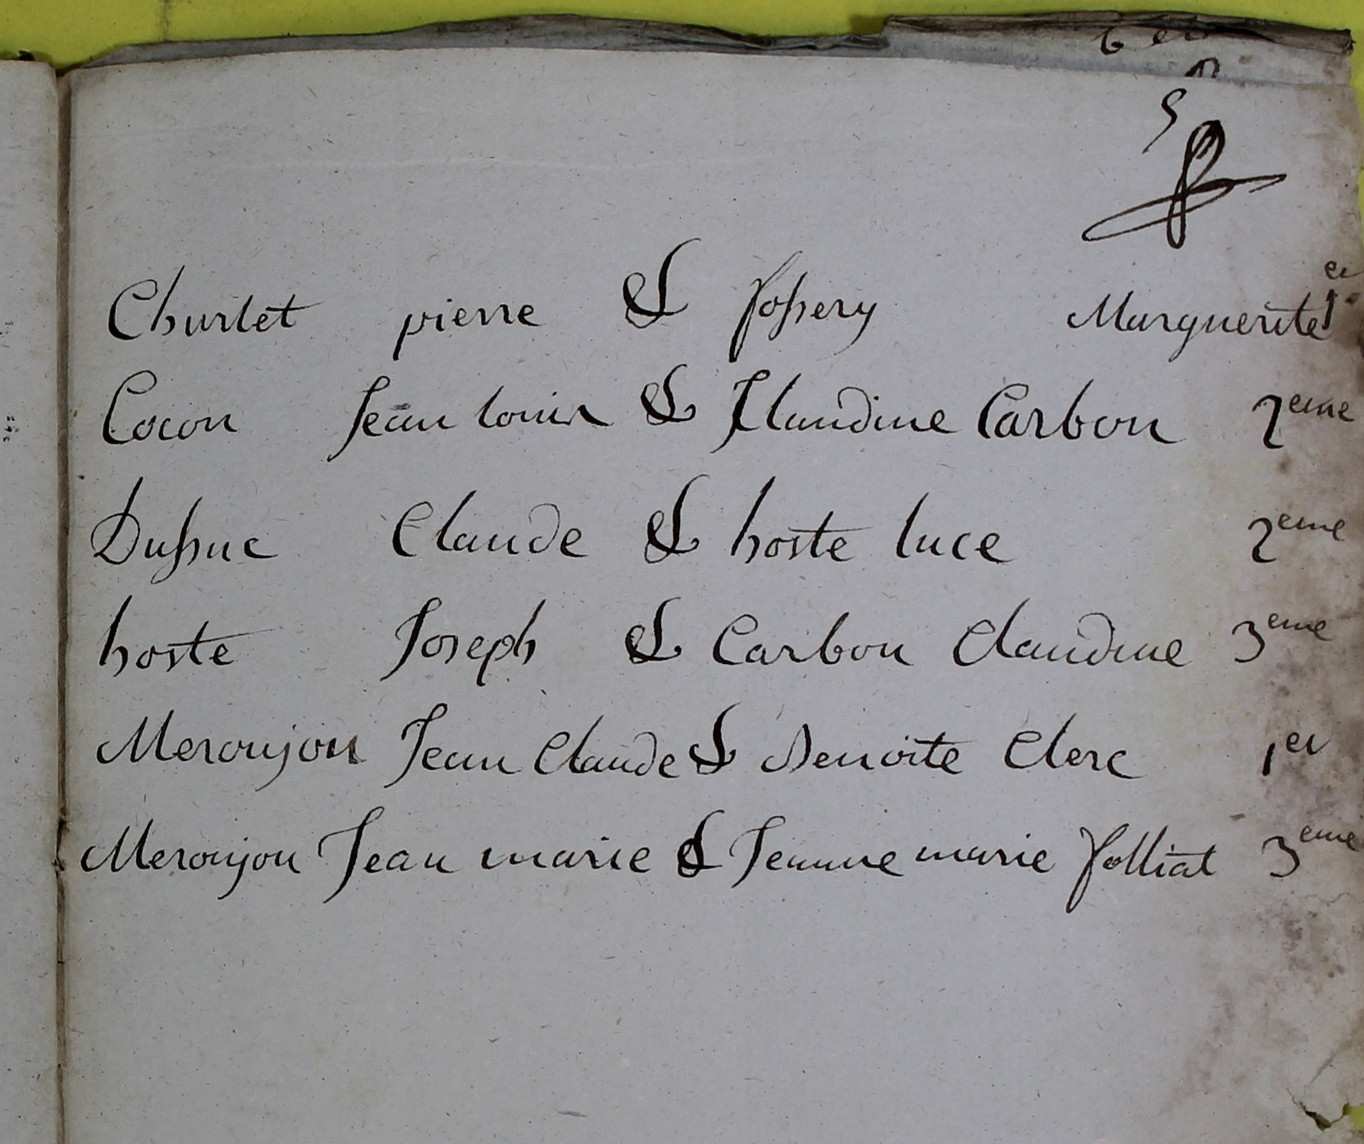 5
Churlet pierre & fossery Marguerite 1er
Cocon Jean Louis & Claudine Carbon 2eme
Dussuc Claude & hoste luce 2eme
hoste Joseph & Carbon Claudine 3eme
Meroujon Jean Claude & Benoite Clerc 1er
Meroujon Jean marie & Jeanne marie folliat 3eme